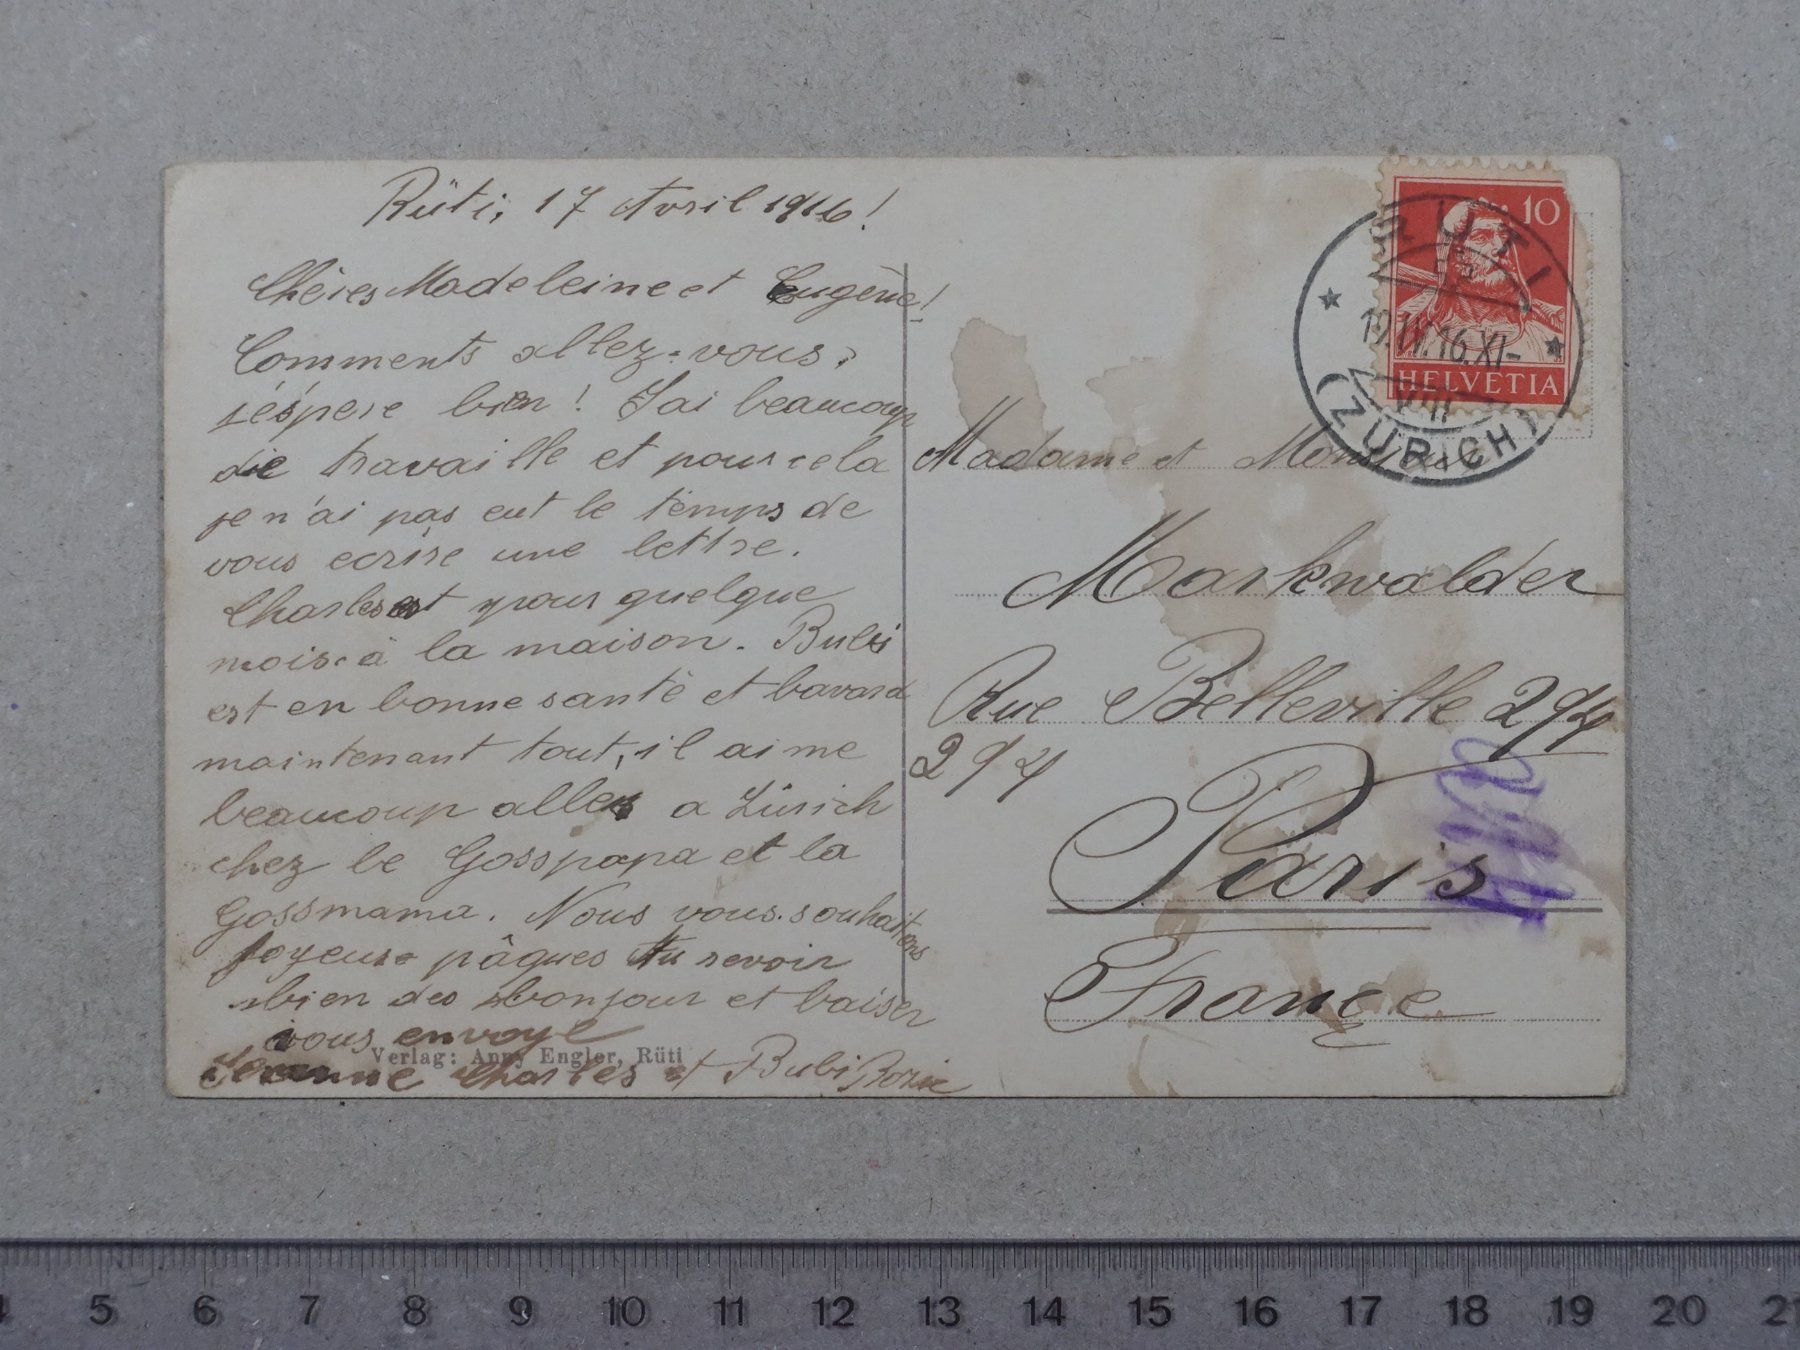 Rüti, 17 Avril 1916!
Chères Madeleine et Eugène!
Comments allez-vous?
j'éspere bien! J'ai beaucoup
de travaille et pour cela
je n'ai pas eut le temps de
vous ecrire une lettre.
Charles est pour quelque
mois à la maison. Bubi
est en bonne santé et bavard
maintenant tout, il aime
beaucoup aller a Zürich
chez le Gosspapa et la
Gossmama. Nous vous souhaitons
Joyeuse pâques Au revoir
bien des bonjour et baiser
vous envoye
Charles et Bubi
Verlag: Anny Engler, Rüti
10
HELVETIA
RÜTI
19.IV.16.XI-
VIII
(ZÜRICH)
Madame et Monsieur
Markwalder
Rue Belleville 294
294
Paris
France
4 5 6 7 8 9 10 11 12 13 14 15 16 17 18 19 20 21